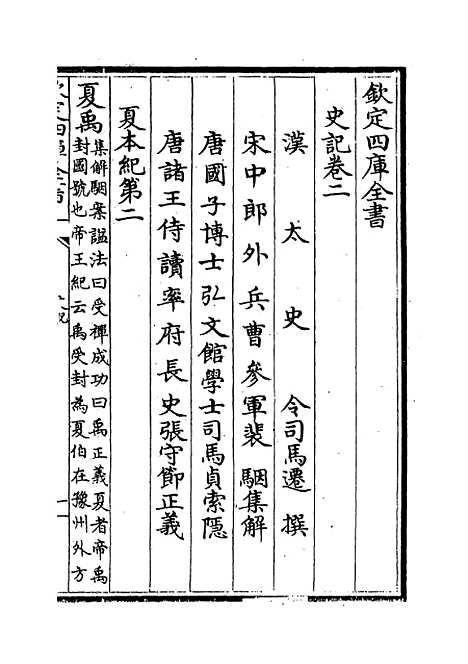 欽定四庫全書
史記卷二
漢太史令司馬遷撰
宋中郎外兵曹參軍裴駰集解
唐國子博士弘文館學士司馬貞索隱
唐諸王侍讀率府長史張守節正義
夏本紀第二
夏禹集解駰案諡法曰受禪成功曰禹正義夏者帝禹
封國號也帝王紀云禹受封為夏伯在豫州外方
欽定四庫全書
史記